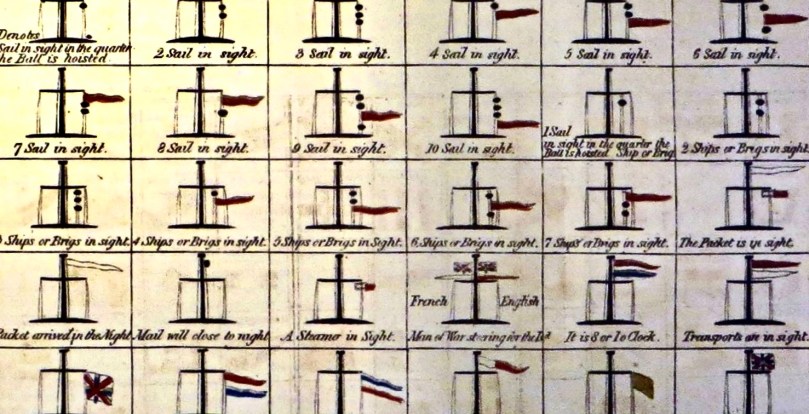 Denotes
Sail in sight in the quarter
he Ball is hoisted.
2 Sail in sight.
3 Sail in sight.
4 Sail in sight.
5 Sail in sight.
6 Sail in sight.
7 Sail in sight.
8 Sail in sight.
9 Sail in sight.
10 Sail in sight.
1 Sail
in sight in the quarter the
Ball is hoisted. Ship or Brig
2 Ships or Brigs in sight
Ships or Brigs in sight.
4 Ships or Brigs in sight.
5 Ships or Brigs in Sight.
6 Ships or Brigs in sight.
7 Ships or Brigs in sight.
The Packet is in sight.
French
English
Packet arrived in the Night
Mail will close to night
A Steamer in Sight.
Man of War steering for the
It is 8 or 10 Clock.
Transports are in sight.